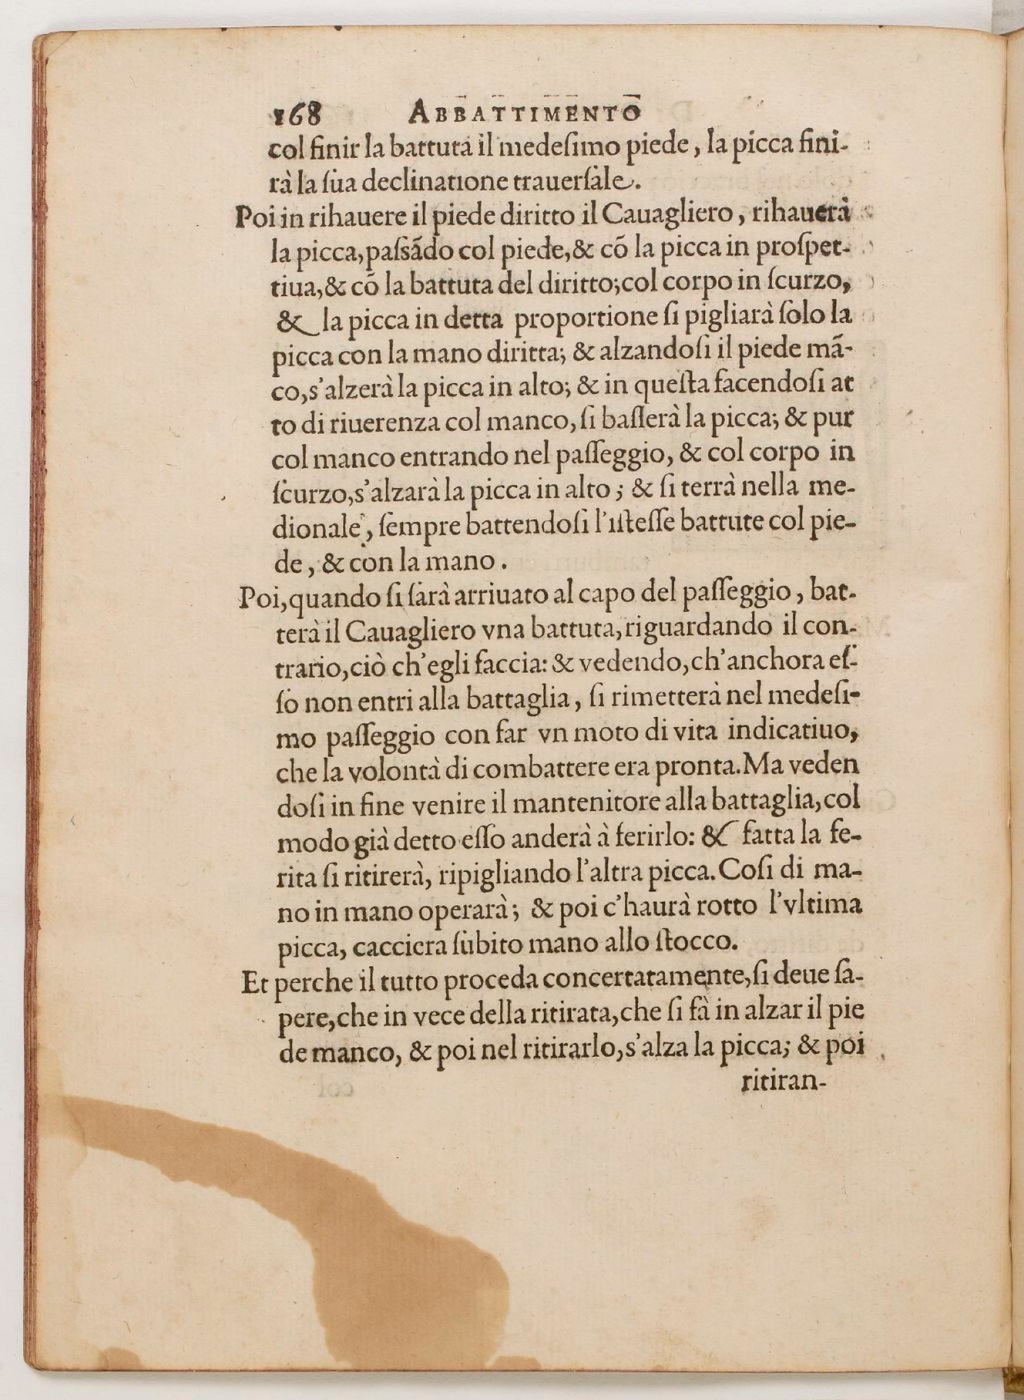 168 ABBATTIMENTO
col finir la battuta il medeſimo piede, la picca fini-
rà la ſua declinatione trauerſale.
Poi in rihauere il piede diritto il Cauagliero, rihauerà
la picca, paſsãdo col piede, & cõ la picca in proſpet-
tiua, & cõ la battuta del diritto; col corpo in ſcurzo,
& la picca in detta proportione ſi pigliarà ſolo la
picca con la mano diritta; & alzandoſi il piede mã-
co, s'alzerà la picca in alto; & in queſta facendoſi at
to di riuerenza col manco, ſi baſſerà la picca; & pur
col manco entrando nel paſſeggio, & col corpo in
ſcurzo, s'alzarà la picca in alto; & ſi terrà nella me-
dionale, ſempre battendoſi l'iſteſſe battute col pie-
de, & con la mano.
Poi, quando ſi ſarà arriuato al capo del paſſeggio, bat-
terà il Cauagliero vna battuta, riguardando il con-
trario, ciò ch'egli faccia: & vedendo, ch'anchora eſ-
ſo non entri alla battaglia, ſi rimetterà nel medeſi-
mo paſſeggio con far vn moto di vita indicatiuo,
che la volontà di combattere era pronta. Ma veden
doſi in fine venire il mantenitore alla battaglia, col
modo già detto eſſo anderà à ferirlo: & fatta la fe-
rita ſi ritirerà, ripigliando l'altra picca. Coſi di ma-
no in mano operarà; & poi c'haurà rotto l'vltima
picca, cacciera ſubito mano allo ſtocco.
Et perche il tutto proceda concertatamente, ſi deue ſa-
pere, che in vece della ritirata, che ſi fà in alzar il pie
de manco, & poi nel ritirarlo, s'alza la picca; & poi
ritiran-